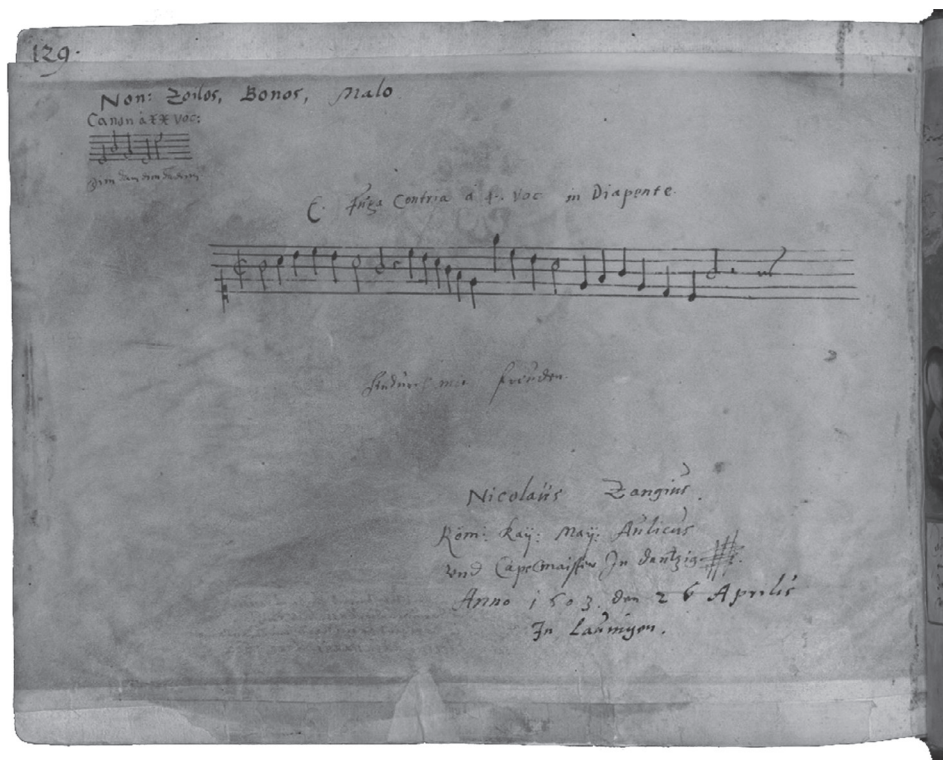 129.
Non: Zoilos, Bonos, Malo
Canon à XX voc:
C. Fuga Contria à 4. voc in Diapente.
mit freuden.
Nicolaüs Zangius.
Röm: Kaÿ: Maÿ: Aulicus
vnd Capelmaister In dantzig
Anno 1603. den 26 Aprilis
In Lauingen.